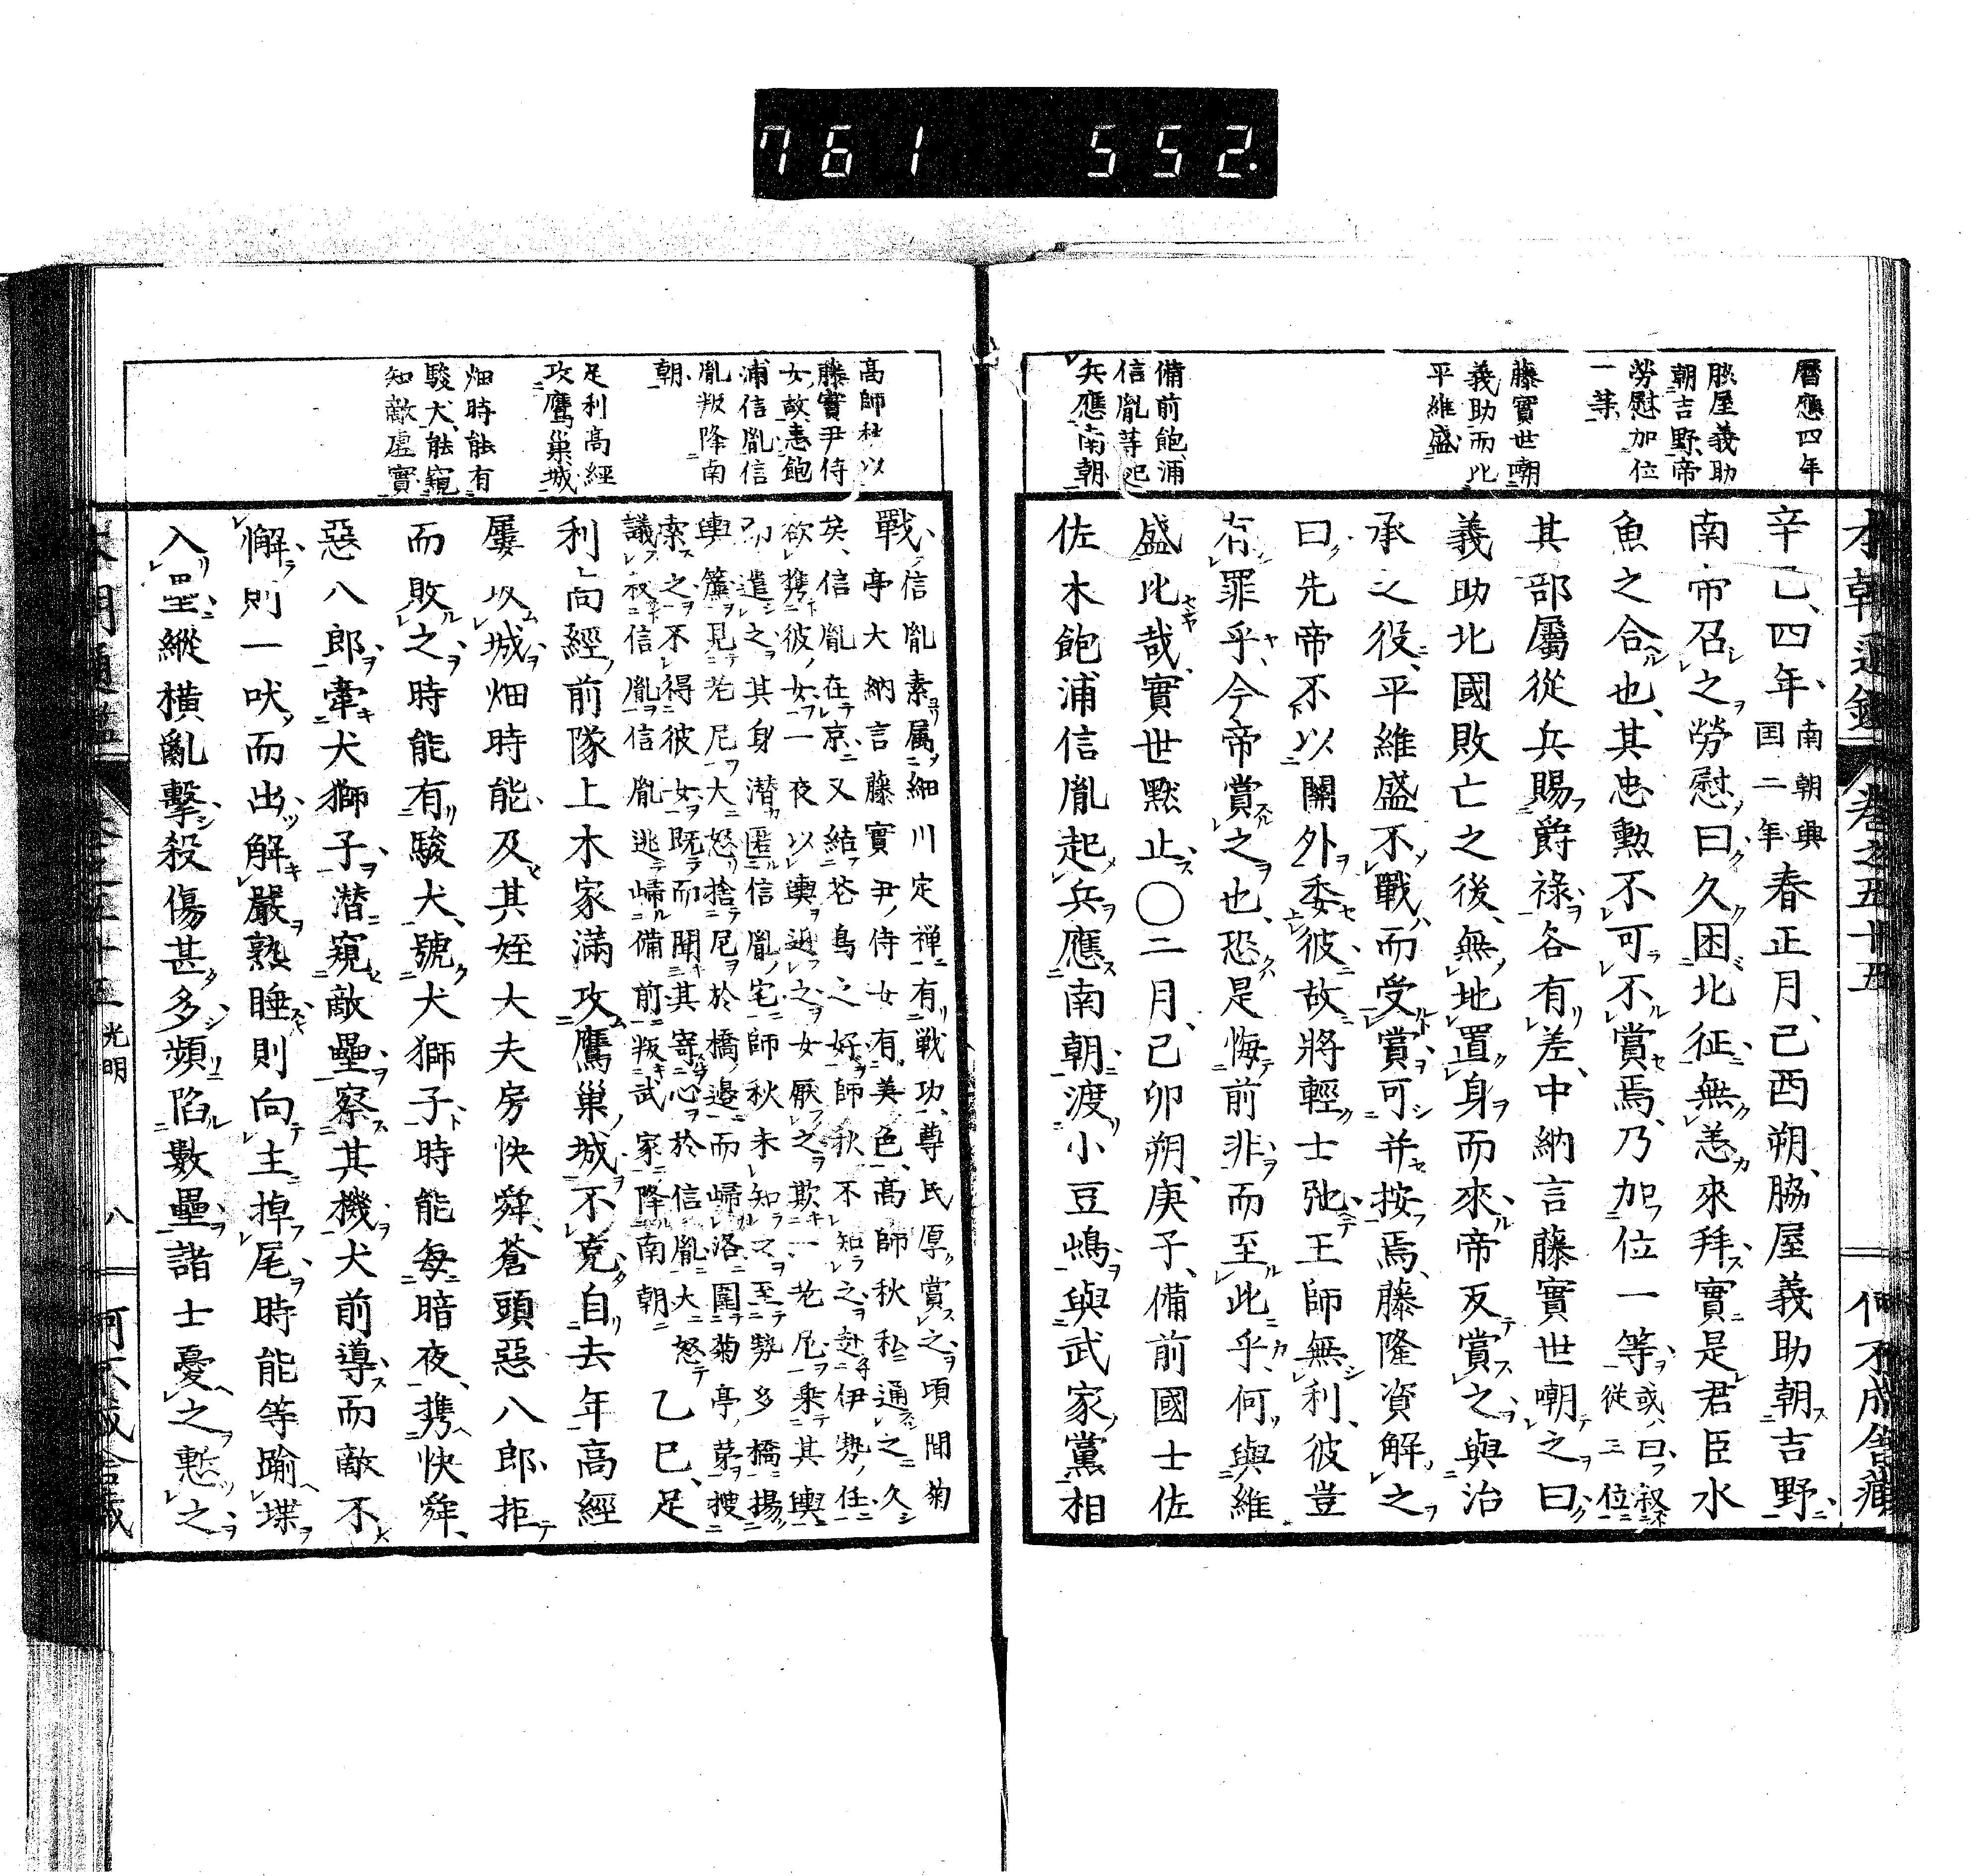 761 552.
本朝通鑑 卷之五十五 何不成舎藏
曆應四年
脇屋義助
朝吉野帝
勞慰加位
一等
藤實世嘲
義助而比
平維盛
備前飽浦
信胤等起
兵應南朝
辛巳、四年、南朝興国二年春正月、己酉朔、脇屋義助朝吉野、
南帝召之勞慰曰、久困北征、無恙來拜、實是君臣水
魚之合也、其忠勲不可不賞焉、乃加位一等、或曰、叙從三位
其部屬從兵賜爵祿各有差、中納言藤實世嘲之曰、
義助北國敗亡之後、無地置身而來、帝反賞之、與治
承之役、平維盛不戰而受賞可并按焉、藤隆資解之
曰、先帝不以閫外委彼故將輕士弛王師無利、彼豈
有罪乎、今帝賞之也、恐是悔前非而至此乎、何與維
盛比哉、實世默止〇二月、己卯朔、庚子、備前國士佐
佐木飽浦信胤起兵應南朝、渡小豆嶋與武家黨相
高師秋以
藤實尹侍
女故恚飽
浦信胤信
胤叛降南
朝
足利高經
攻鷹巢城
畑時能有
駿犬能窺
知敵虛實
戰、信胤素属細川定禅有戦功、尊氏厚賞之、頃間菊
亭大納言藤實尹侍女有美色、高師秋私通之久
矣、信胤在京又結花鳥之好、師秋不知之、赴伊勢任
欲携彼女、一夜以輿迎之、女厭之欺一老尼乘其輿
即遣之、其身潜匿信胤宅、師秋未知之、至勢多橋揚
輿簾見老尼大怒捨尼於橋邊而歸洛、圍菊亭第捜
索之不得彼女、既而聞其寄心於信胤大怒
議殺信胤、信胤逃歸備前叛武家降南朝乙巳、足
利高經前隊上木家滿攻鷹巢城不克、自去年高經
屢攻城、畑時能、及其姪大夫房快舜、蒼頭惡八郎拒
而敗之、時能有駿犬、號犬獅子、時能毎暗夜、携快舜、
惡八郎、牽犬獅子、潜窺敵壘、察其機、犬前導而敵不
懈則一吠而出、解嚴熟睡則向主掉尾、時能等踰堞
入壘縱橫亂擊、殺傷甚多、頻陷數壘、諸士憂之慙之
光明 八